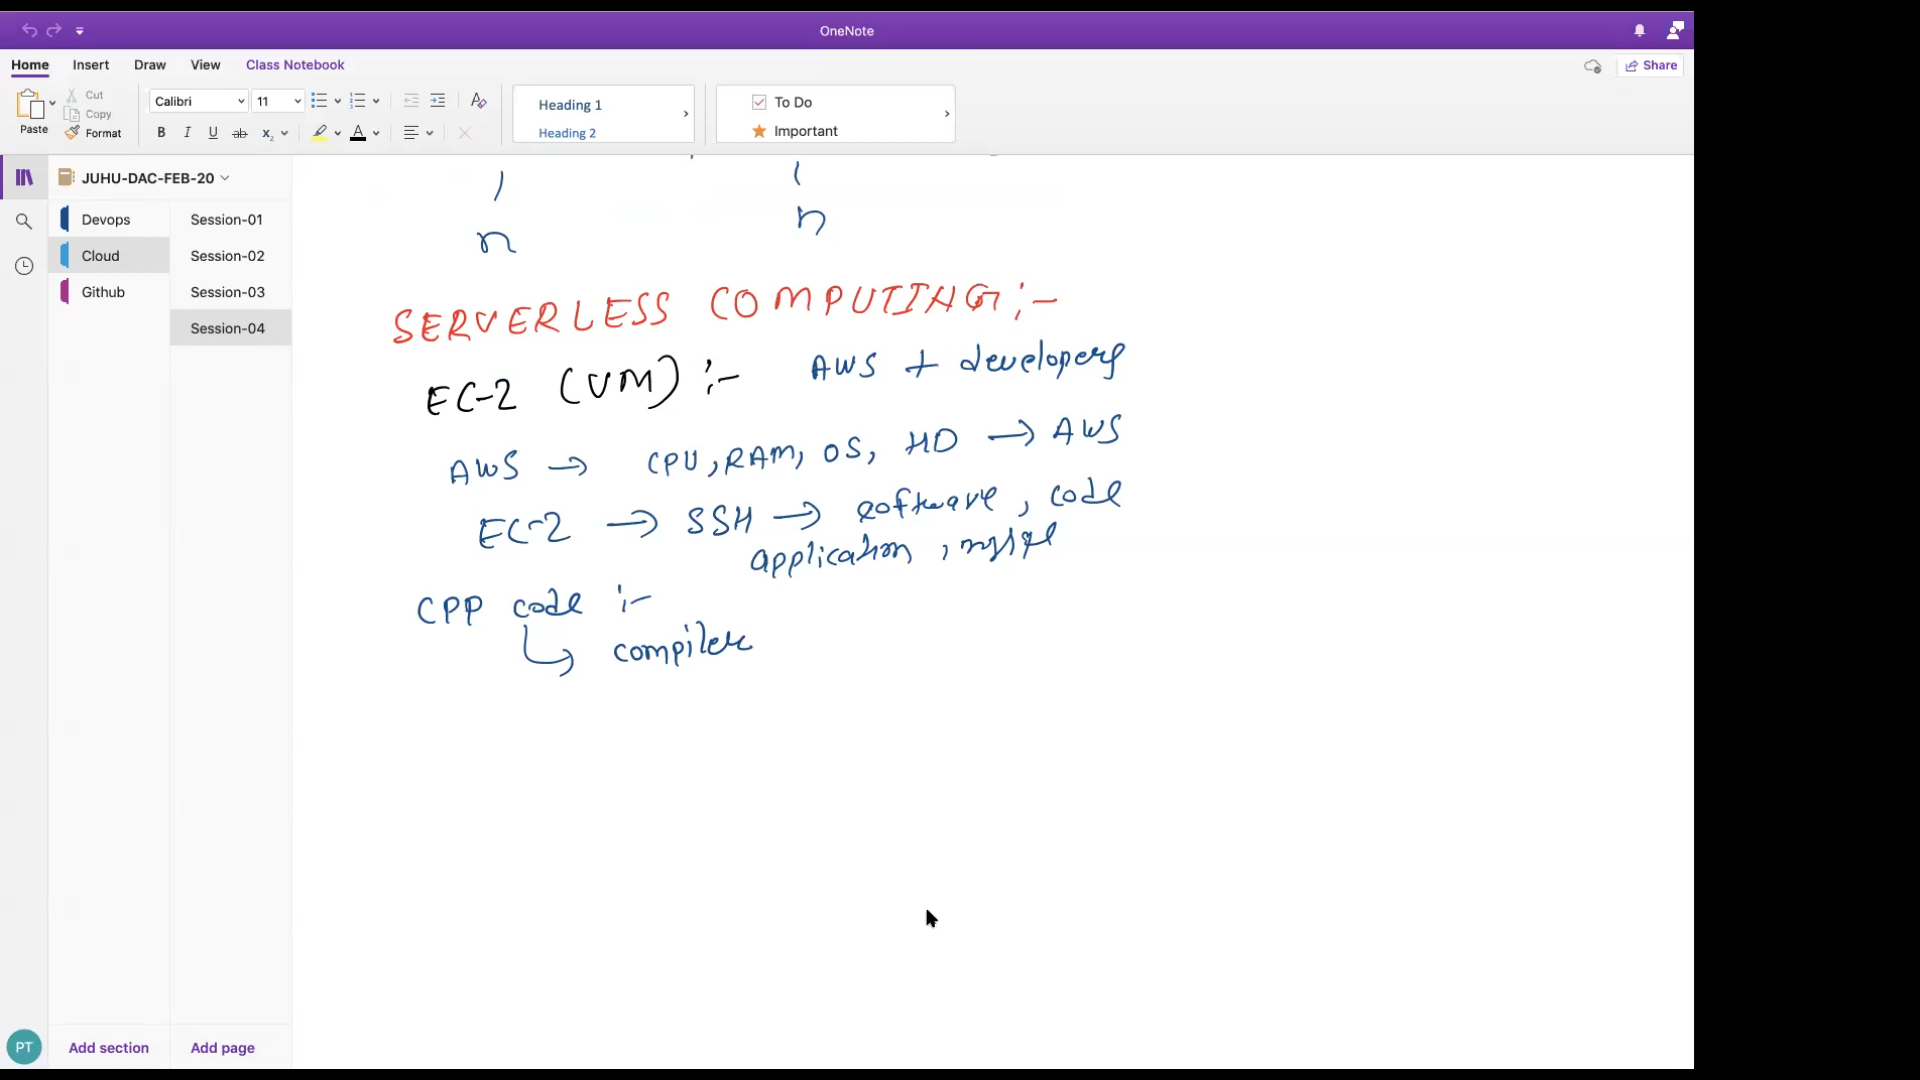 OneNote
Home Insert Draw View Class Notebook
Share
Paste
Cut
Copy
Format
Calibri 11
B I U ab x₂ A
Heading 1
Heading 2
To Do
Important
JUHU-DAC-FEB-20
Devops
Cloud
Github
Session-01
Session-02
Session-03
Session-04
n n
SERVERLESS COMPUTING :-
EC-2 (VM) :- AWS + developers
AWS → CPU, RAM, OS, HD → AWS
EC-2 → SSH → software, code
application, mysql
CPP code :-
compiler
PT
Add section
Add page